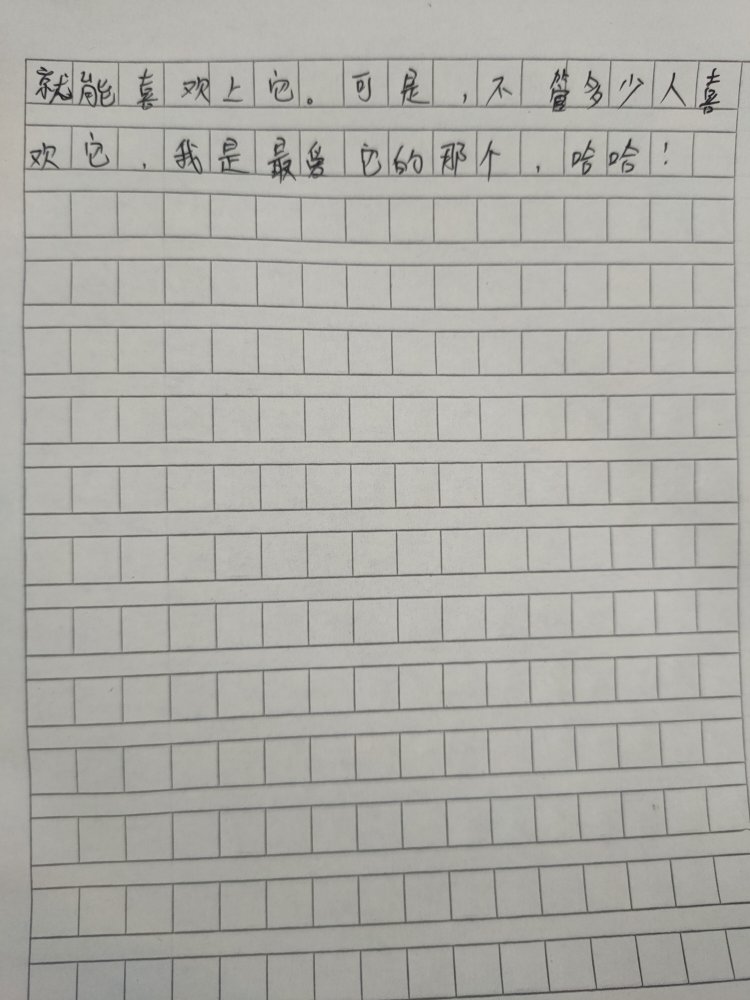 就能喜欢上它。可是,不管多少人喜
欢它,我是最爱它的那个,哈哈!